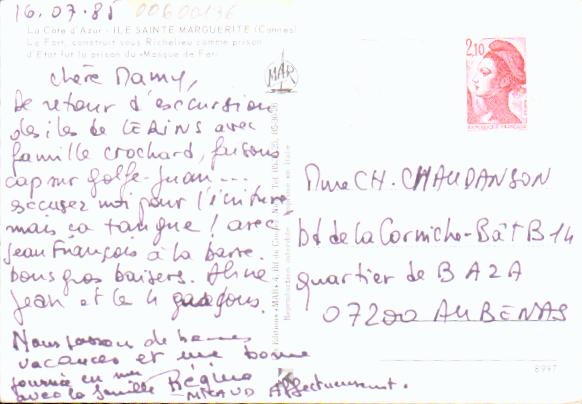 16.07.85 00600136
La Côte d'Azur - ILE SAINTE MARGUERITE (Cannes)
Le Fort, construit sous Richelieu comme prison
d'Etat fut la prison du «Masque de Fer»
chère Mamy,
De retour d'escursion
des iles de LERINS avec
famille crochard, faisons
cap sur golfe-juan ...
escusez moi pour l'écriture
mais ça tangue ! avec
Jean François à la barre.
bons gros baisers. Aline
Jean et le 4 garçons.
Nous passons de bonnes
vacances et une bonne
journée en mer
avec la famille Régine
MIRAUD Affectueusement.
MAR
Editions «MAR»
Reproduction interdite
2,10
REPUBLIQUE FRANÇAISE
Mme CH. CHAUDANSON
bd de la Corniche-BâT B14
quartier de BAZA
07200 AUBENAS
8997